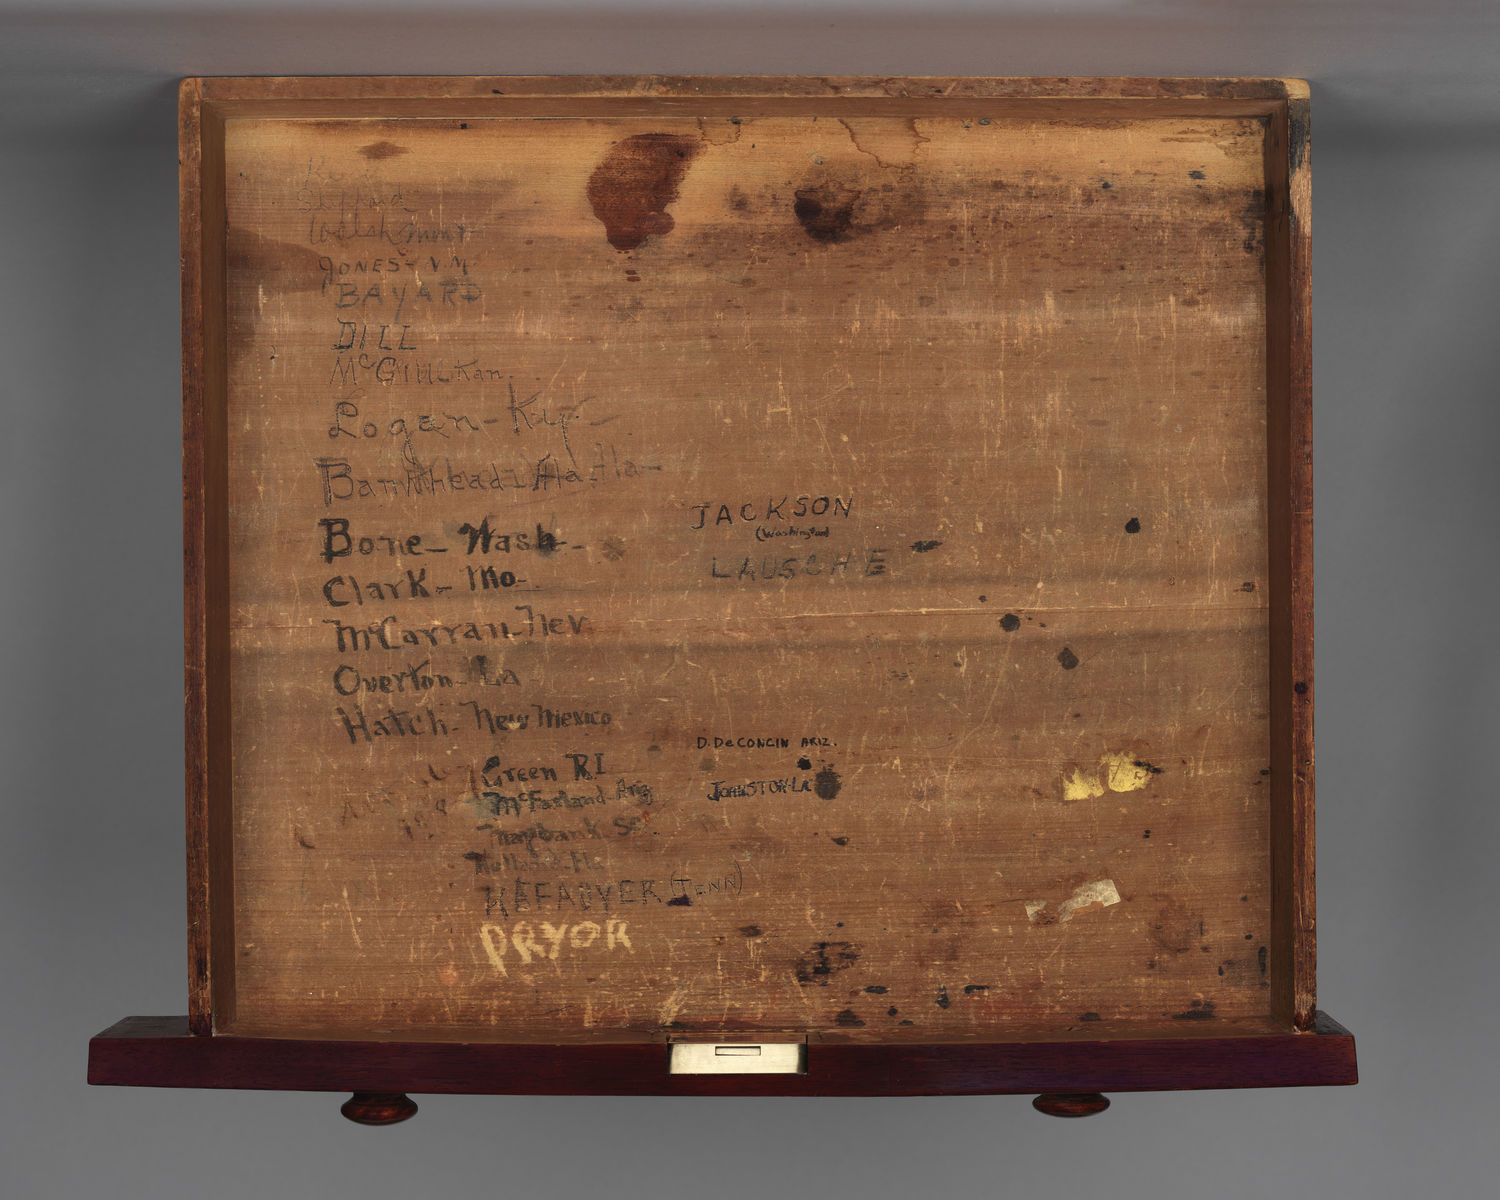 Walsh Mont
JONES - N.M.
BAYARD
DILL
McGill Kan.
Logan - Ky. -
Bankhead - Ala -
Bone - Wash -
Clark - Mo -
McCarran - Nev.
Overton - La -
Hatch - New Mexico
Green RI
McFarland - Ariz
Maybank SC
Holland - Fla
KEFAUVER (TENN)
PRYOR
JACKSON
(Washington)
LAUSCHE
D. DeCONCINI ARIZ.
JOHNSTON - LA